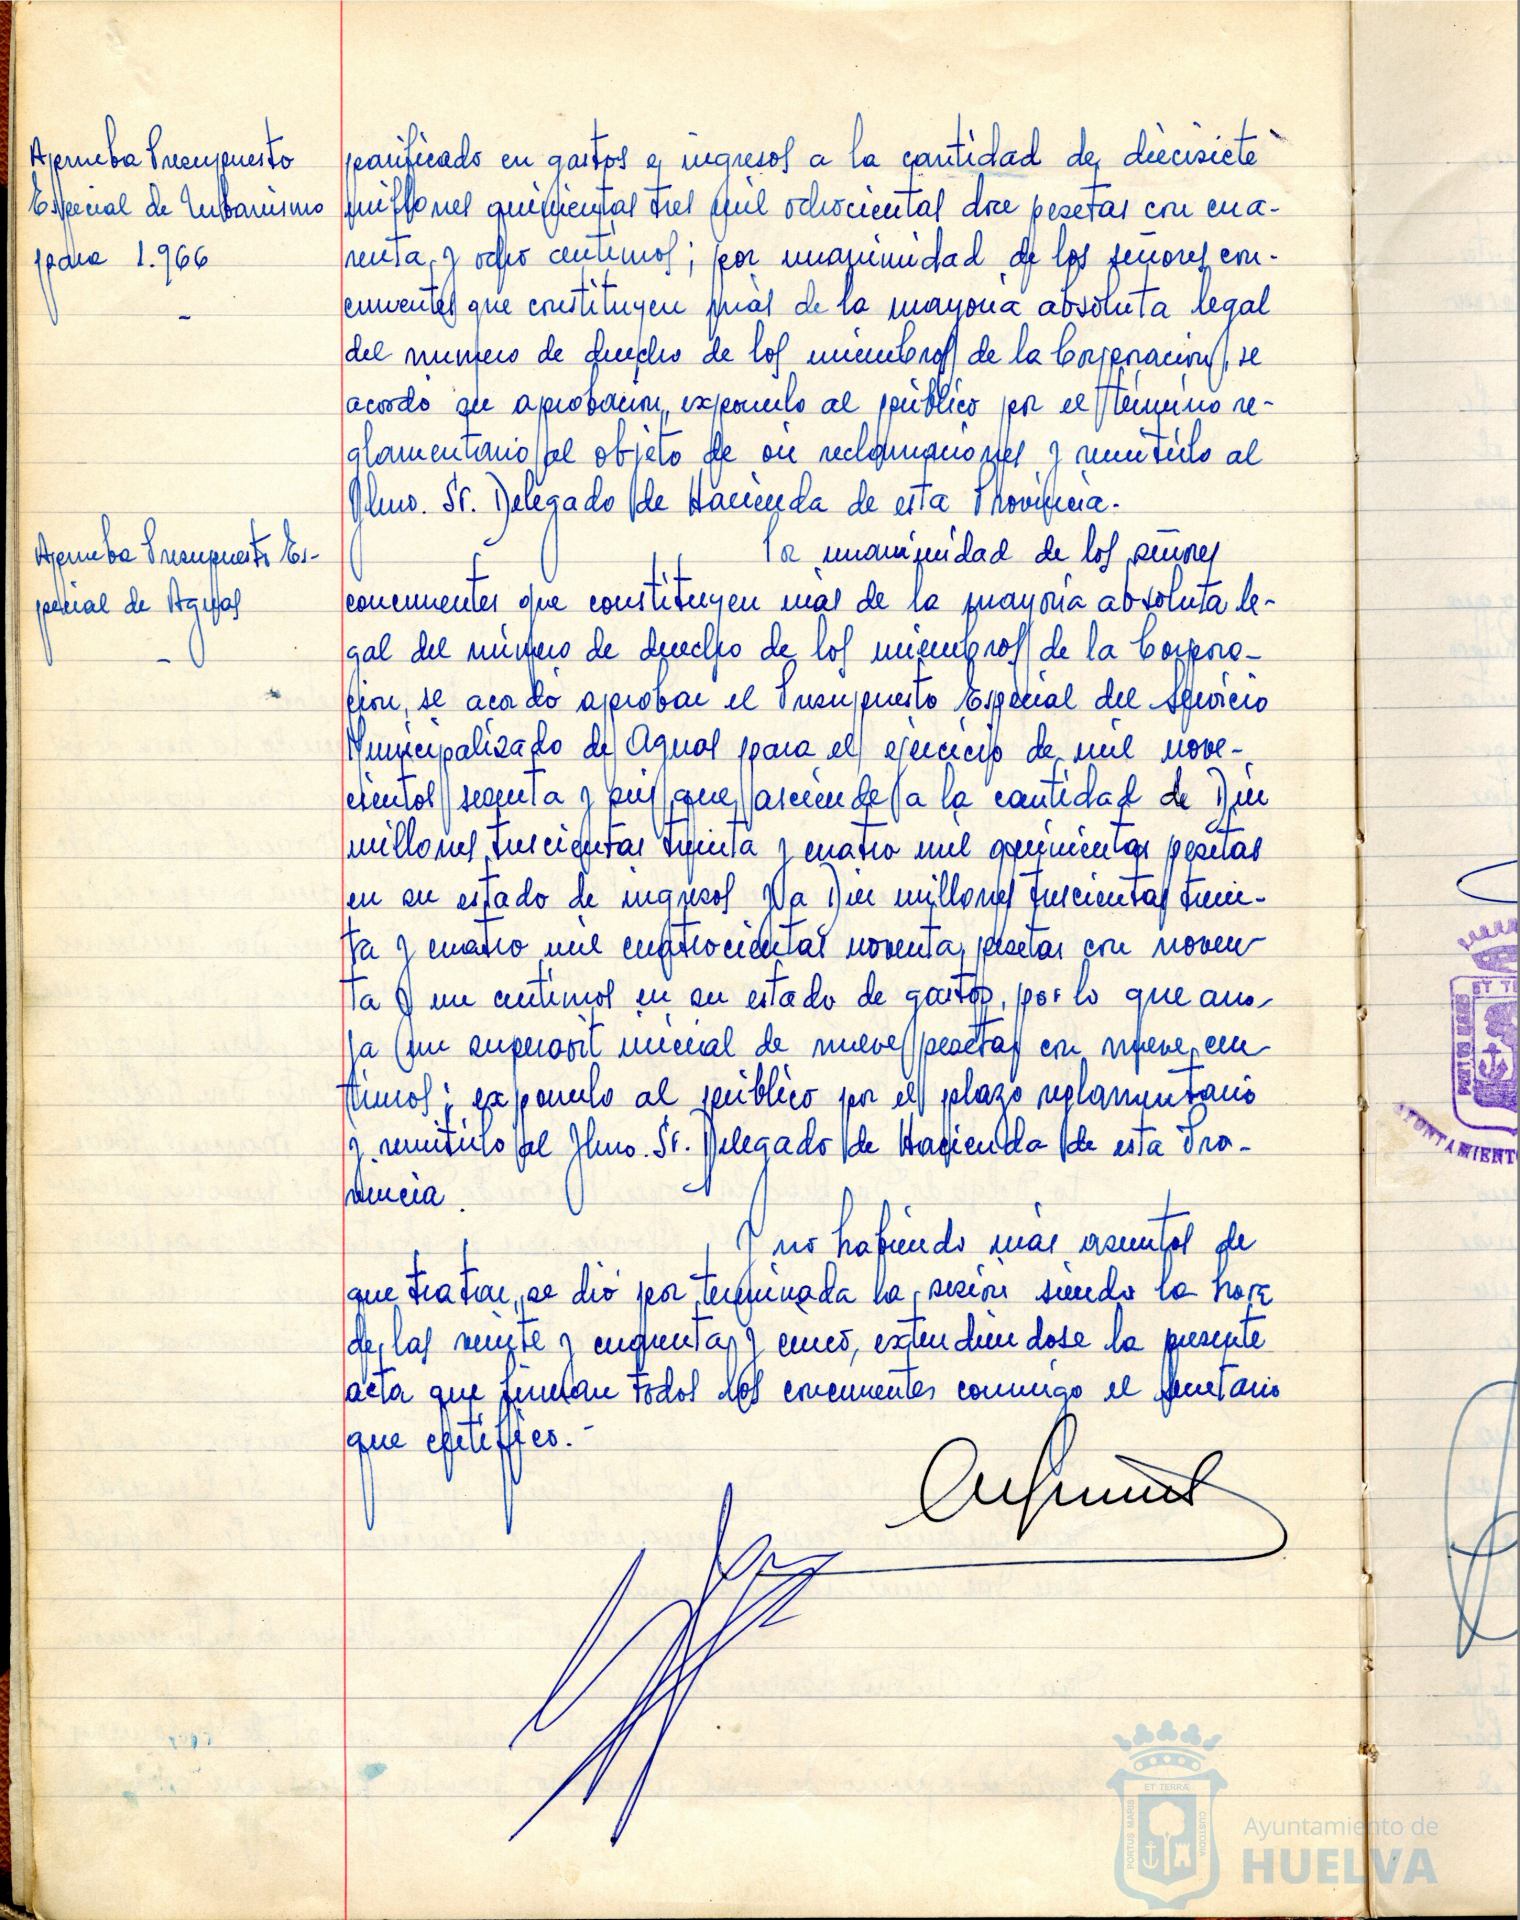 Aprueba Presupuesto
Especial de Urbanismo
para 1.966
parificado en gastos e ingresos a la cantidad de diecisiete
millones quinientas tres mil ochocientas doce pesetas con cua-
renta y ocho centimos; por unanimidad de los señores con-
currentes que constituyen más de la mayoría absoluta legal
del numero de derecho de los miembros de la Corporación, se
acordó su aprobación, exponerlo al público por el término re-
glamentario al objeto de oir reclamaciones y remitirlo al
Ilmo. Sr. Delegado de Hacienda de esta Provincia.
Aprueba Presupuesto Es-
pecial de Aguas
Por unanimidad de los señores
concurrentes que constituyen más de la mayoría absoluta le-
gal del número de derecho de los miembros de la Corpora-
ción, se acordó aprobar el Presupuesto Especial del Servicio
Municipalizado de Aguas para el ejercicio de mil nove-
cientos sesenta y seis que asciende a la cantidad de Diez
millones trescientas treinta y cuatro mil quinientas pesetas
en su estado de ingresos y a Diez millones trescientas trein-
ta y cuatro mil cuatrocientas noventa pesetas con noven-
ta y un centimos en su estado de gastos, por lo que arro-
ja un superavit inicial de nueve pesetas con nueve cen-
timos; exponerlo al público por el plazo reglamentario
y remitirlo al Ilmo. Sr. Delegado de Hacienda de esta Pro-
vincia.
Y no habiendo más asuntos de
que tratar, se dió por terminada la sesión siendo la hora
de las veinte y cincuenta y cinco, extendiendose la presente
acta que firman todos los concurrentes conmigo el Secretario
que certifico.-
ET TERRA
PORTUS MARIS
CUSTODIA
Ayuntamiento de
HUELVA
PORTUS MARIS
AYUNTAMIENTO